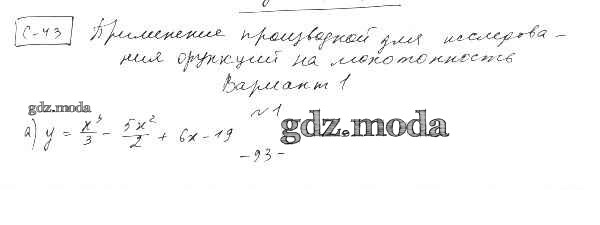 С-43 Применение производной для исследова-
ния функций на монотонность
Вариант 1
№1
gdz.moda
а) y = x³/3 - 5x²/2 + 6x - 19
gdz.moda
-93-